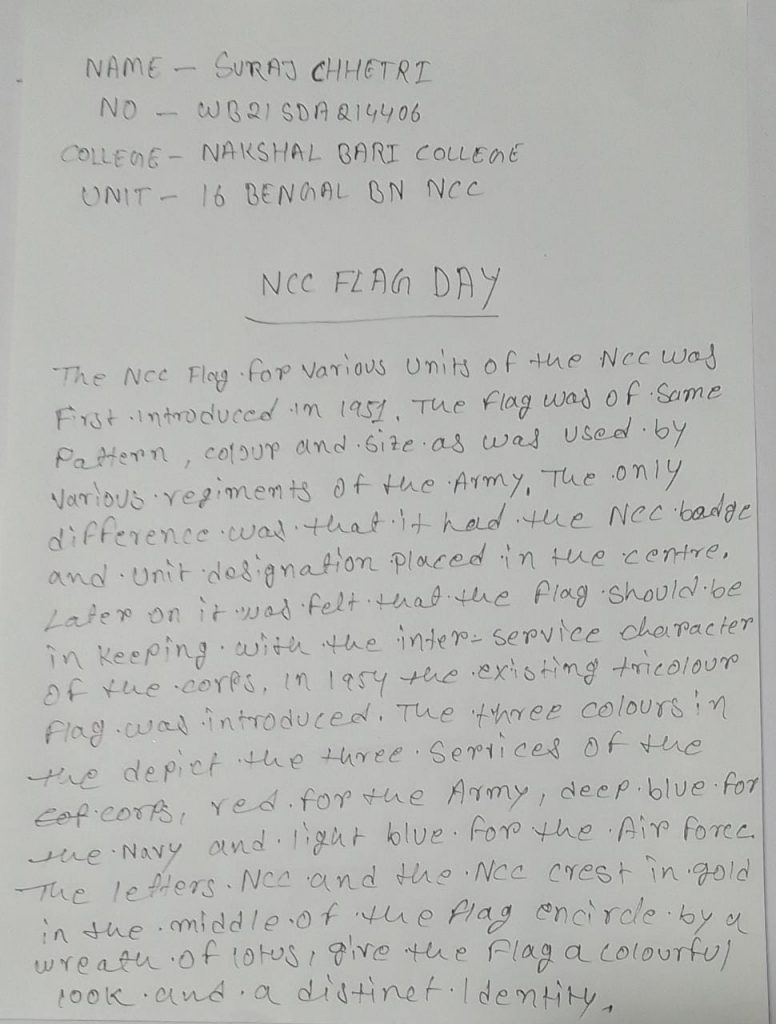 NAME - SURAJ CHHETRI
NO - WB21SDA214406
COLLEGE - NAKSHAL BARI COLLEGE
UNIT - 16 BENGAL BN NCC
NCC FLAG DAY
The NCC Flag for various units of the NCC was
First introduced in 1951. The flag was of same
Pattern, colour and size as was used by
various regiments of the Army, The only
difference was that it had the NCC badge
and unit designation placed in the centre.
Later on it was felt that the flag should be
in keeping with the inter-service character
of the corps, in 1954 the existing tricolour
flag was introduced. The three colours in
the depict the three services of the
corps, red for the Army, deep blue for
the Navy and light blue for the Air force.
The letters NCC and the NCC crest in gold
in the middle of the flag encircle by a
wreath of lotus, give the Flag a colourful
look and a distinct Identity.